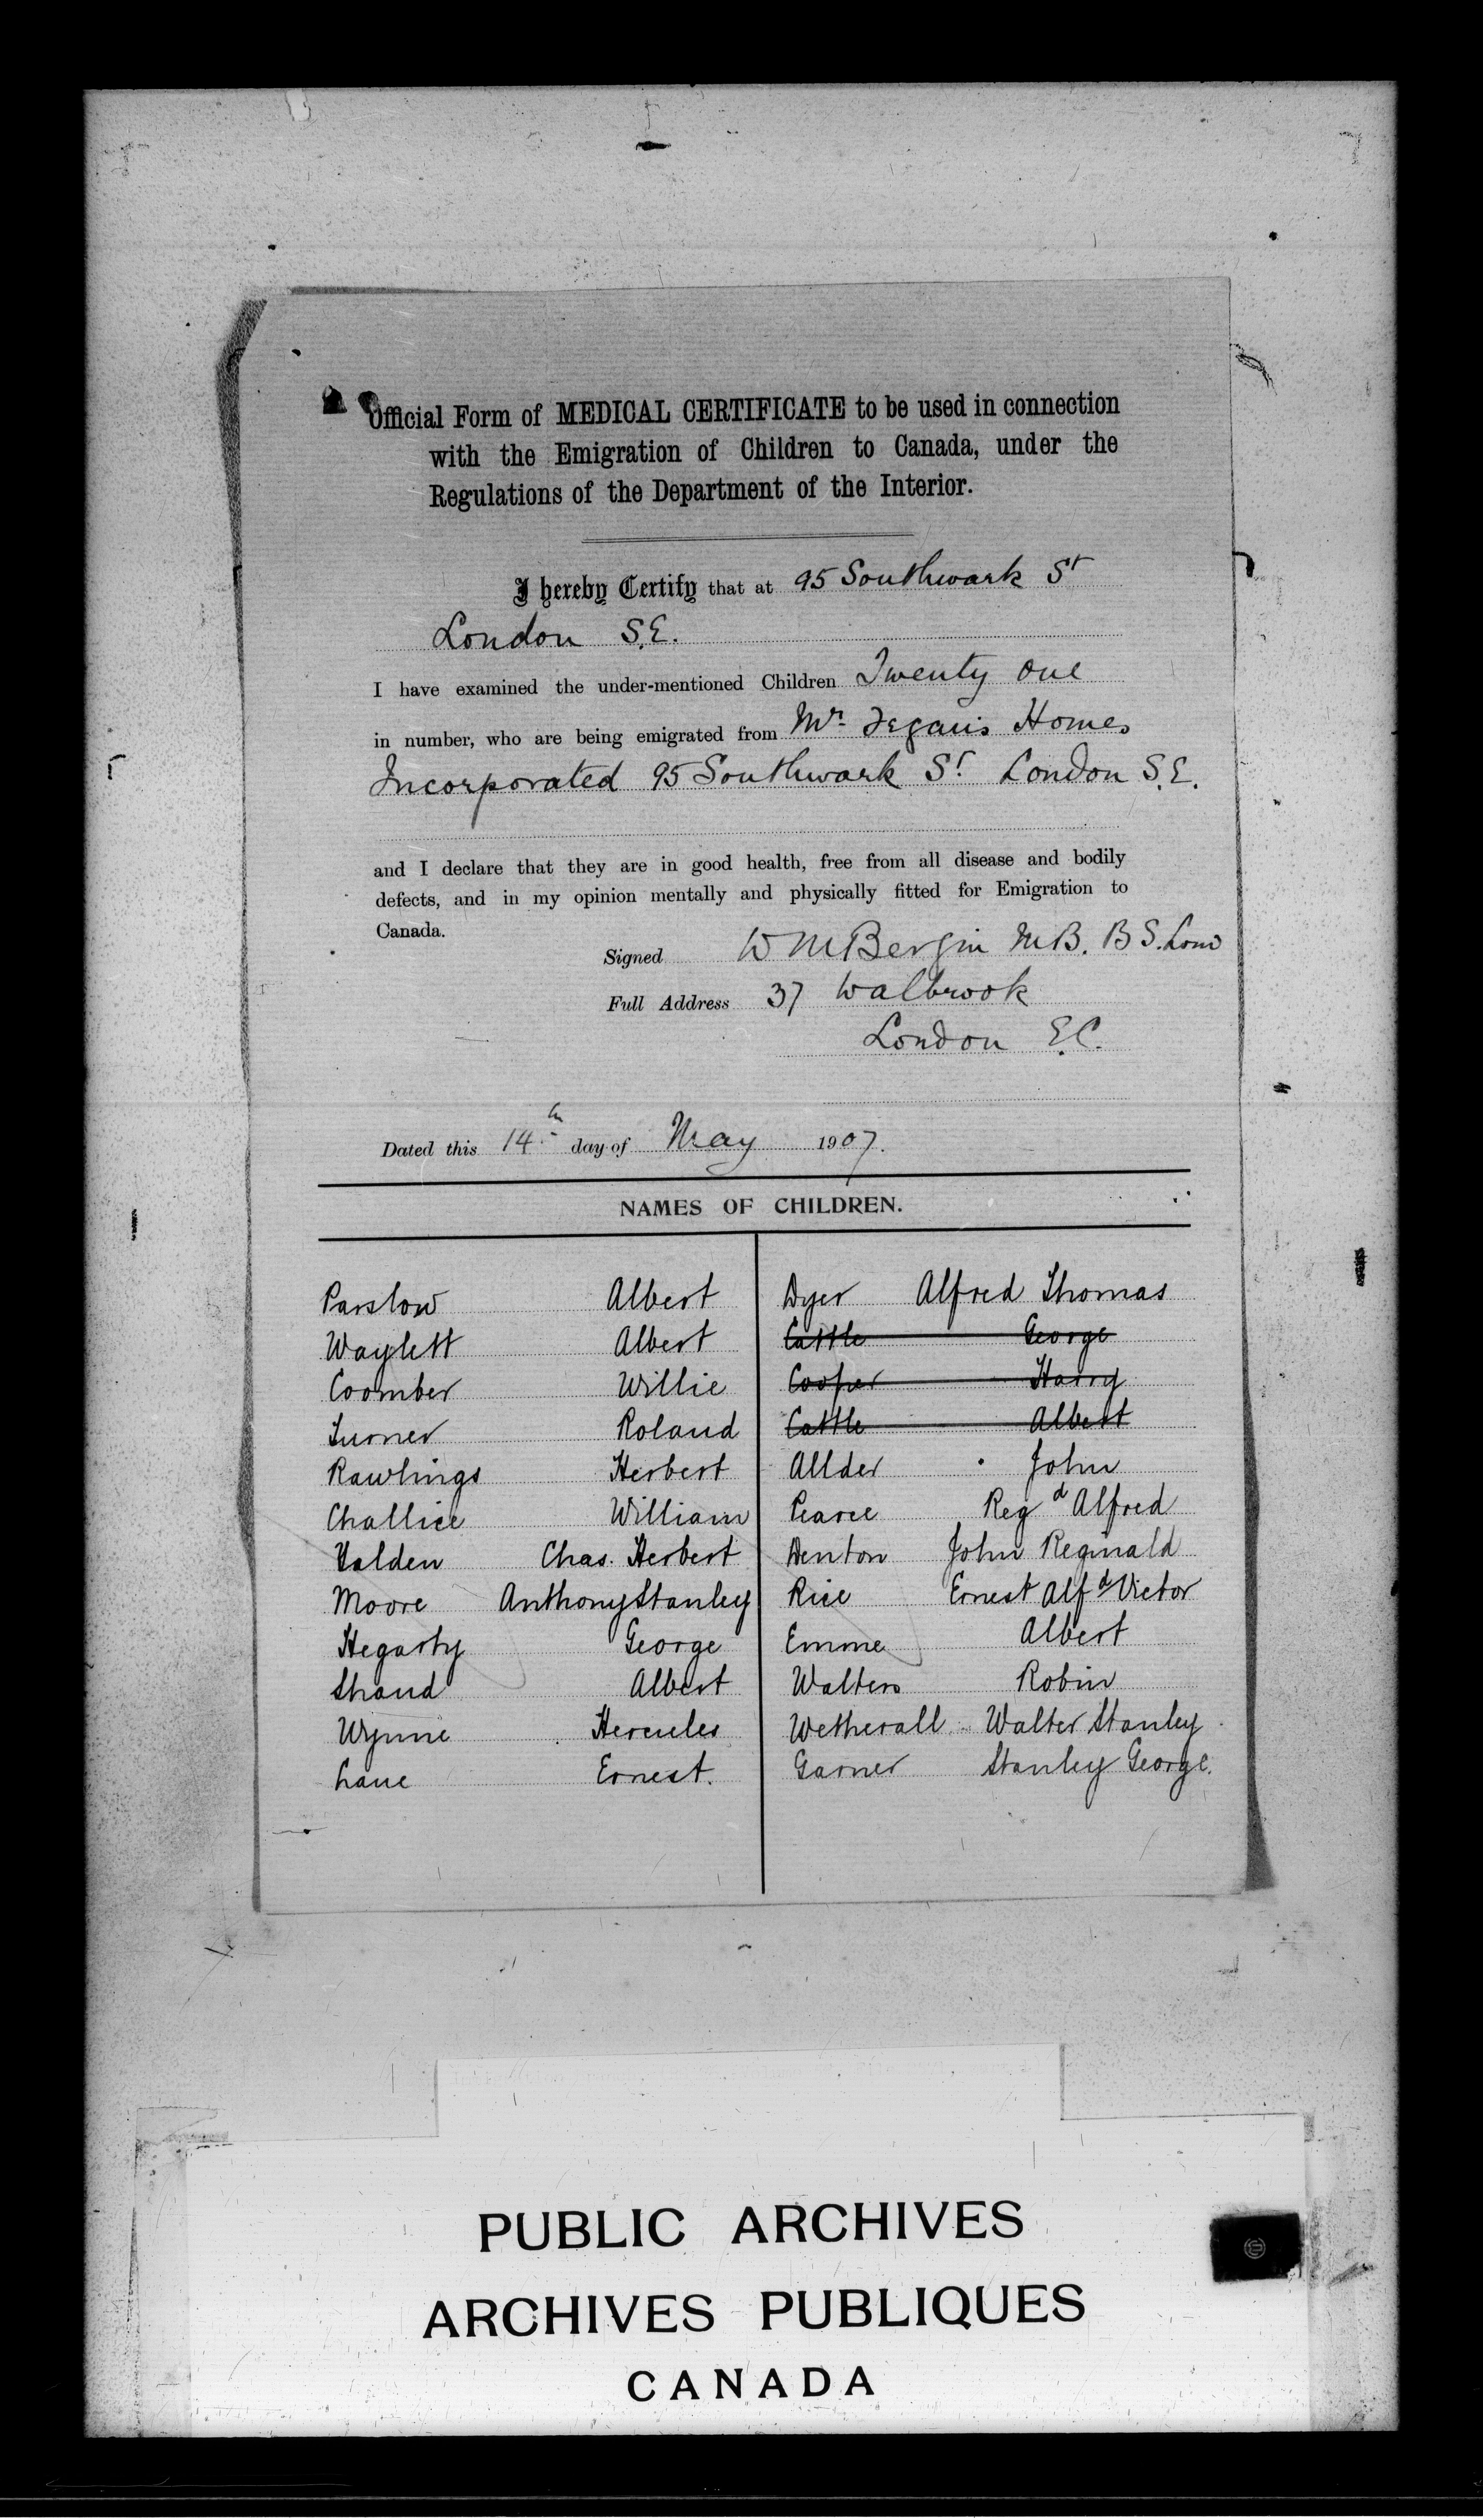 Official Form of MEDICAL CERTIFICATE to be used in connection
with the Emigration of Children to Canada, under the
Regulations of the Department of the Interior.
I hereby Certify that at 95 Southwark St
London S.E.
I have examined the under-mentioned Children Twenty one
in number, who are being emigrated from Mr. Fegan's Homes
Incorporated 95 Southwark St. London S.E.
and I declare that they are in good health, free from all disease and bodily
defects, and in my opinion mentally and physically fitted for Emigration to
Canada.
Signed W M Bergin M.B. B S. Lond
Full Address 37 Walbrook
London E.C.
Dated this 14th day of May 1907.
NAMES OF CHILDREN.
Parslow Albert
Waylett Albert
Coomber Willie
Turner Roland
Rawlings Herbert
Challice William
Halden Chas. Herbert
Moore Anthony Stanley
Hegarty George
Shand Albert
Wynne Hercules
Lane Ernest.
Dyer Alfred Thomas
Cattle George
Cooper Harry
Cattle Albert
Allder John
Pearce Regd Alfred
Denton John Reginald
Rice Ernest Alfd Victor
Emme Albert
Walters Robin
Wetherall Walter Stanley
Garner Stanley George.
PUBLIC ARCHIVES
ARCHIVES PUBLIQUES
CANADA